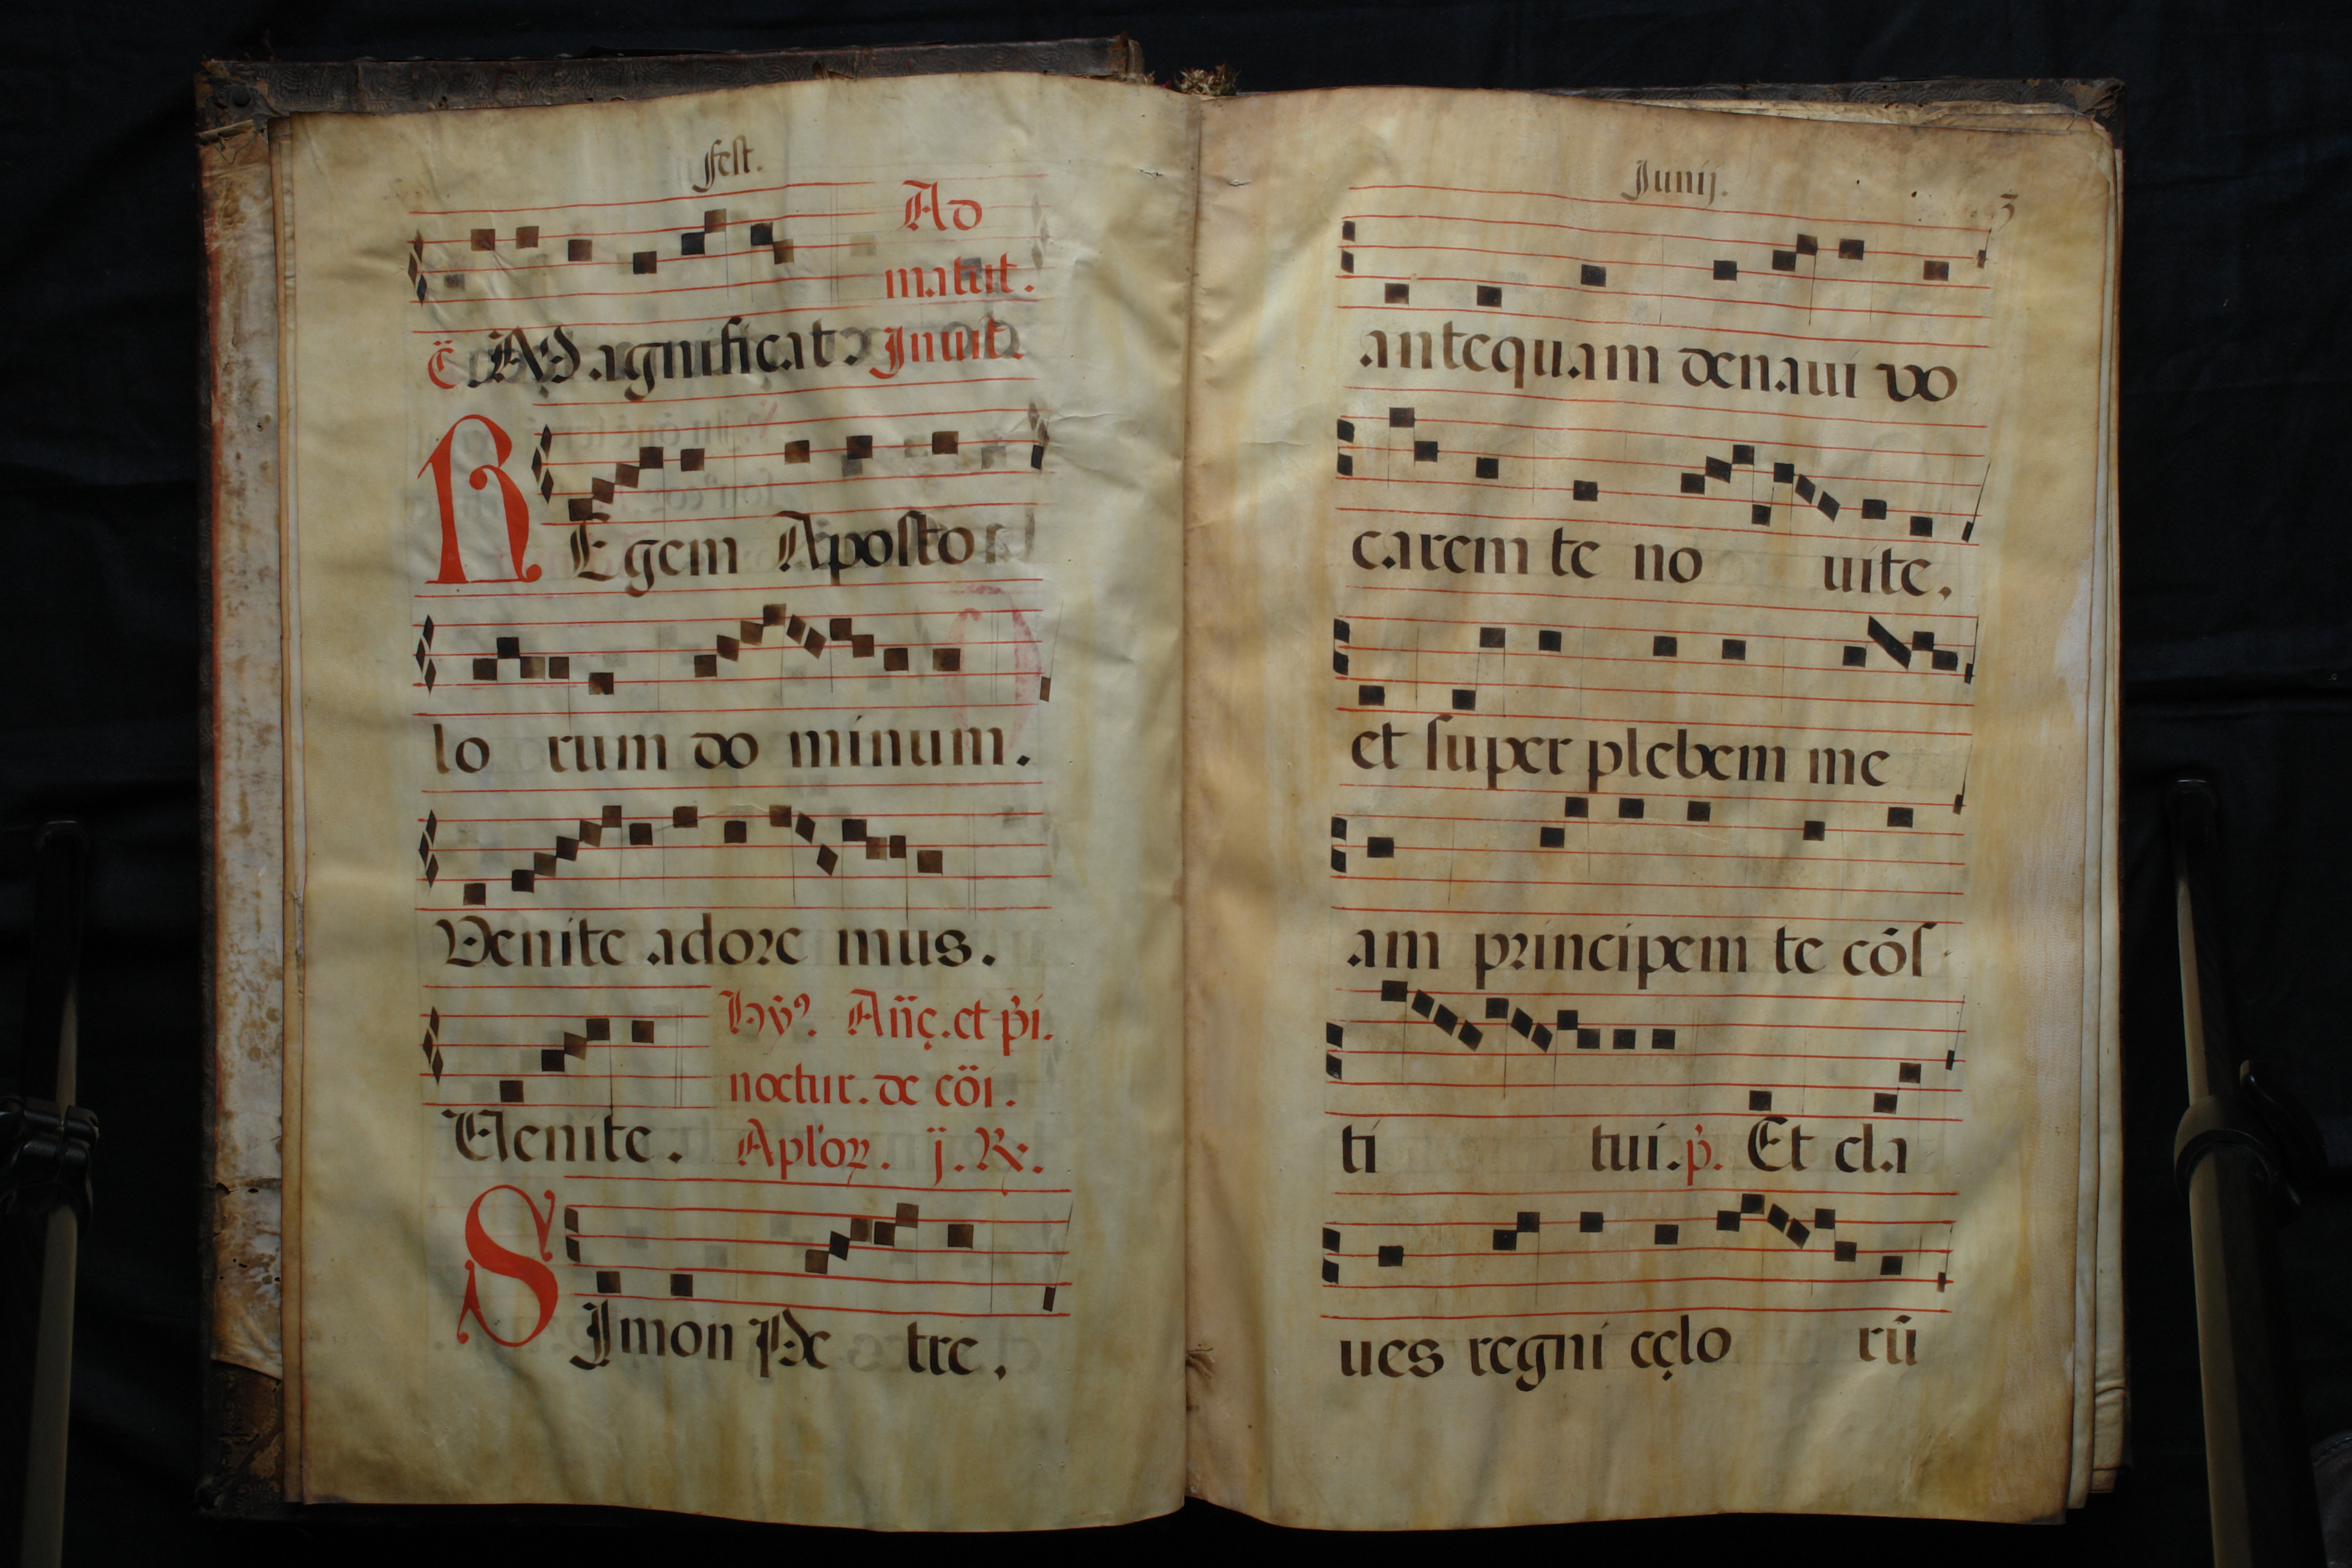 fest.
Ad
matut.
Magnificat. Inuit.
REgem Aposto
lo rum do minum.
Venite adore mus.
Hỹ⁹. Añę. et p̃i.
noctur. de cõi.
Venite. Apl'oꝝ. j. ℞.
SImon Pe tre.
Junij.
3
antequam denaui vo
carem te no uite.
et super plebem me
am principem te cõs
ti tui. p̃. Et cla
ues regni cęlo rũ